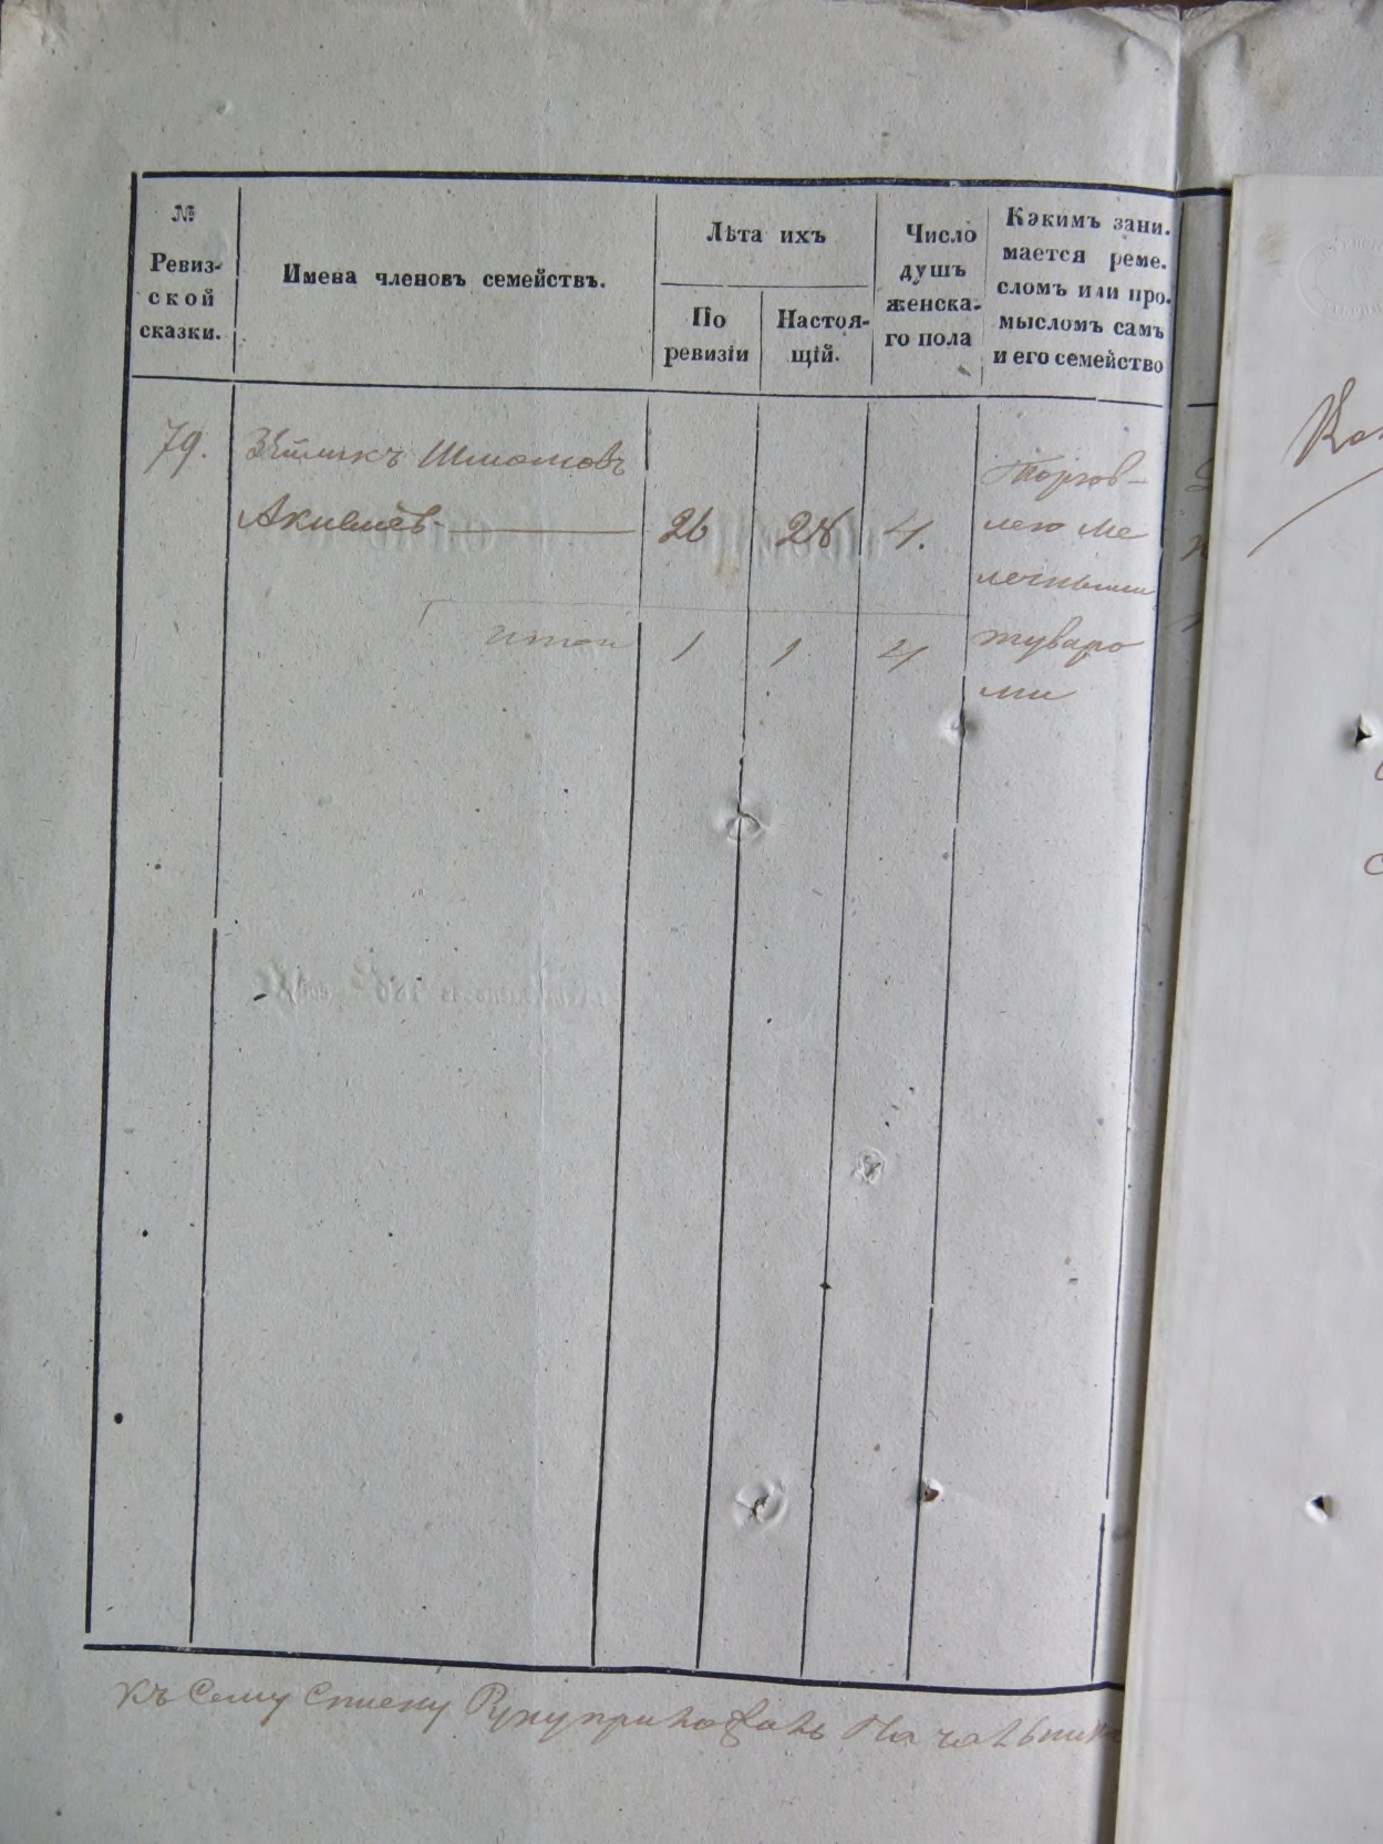 №
Ревиз-
ской
сказки.
Имена членовъ семействъ.
Лѣта ихъ
По
ревизіи
Настоя-
щій.
Число
душъ
женска-
го пола
Кэкимъ зани-
мается реме-
сломъ или про-
мысломъ самъ
и его семейство
79.
Шмомовъ
Акивиев- 26 28 4.
Торгов-
лею ме
лечными
туваро
ми
Итои 1 1 4
Къ Сему Списку Руку приложалъ Начальник